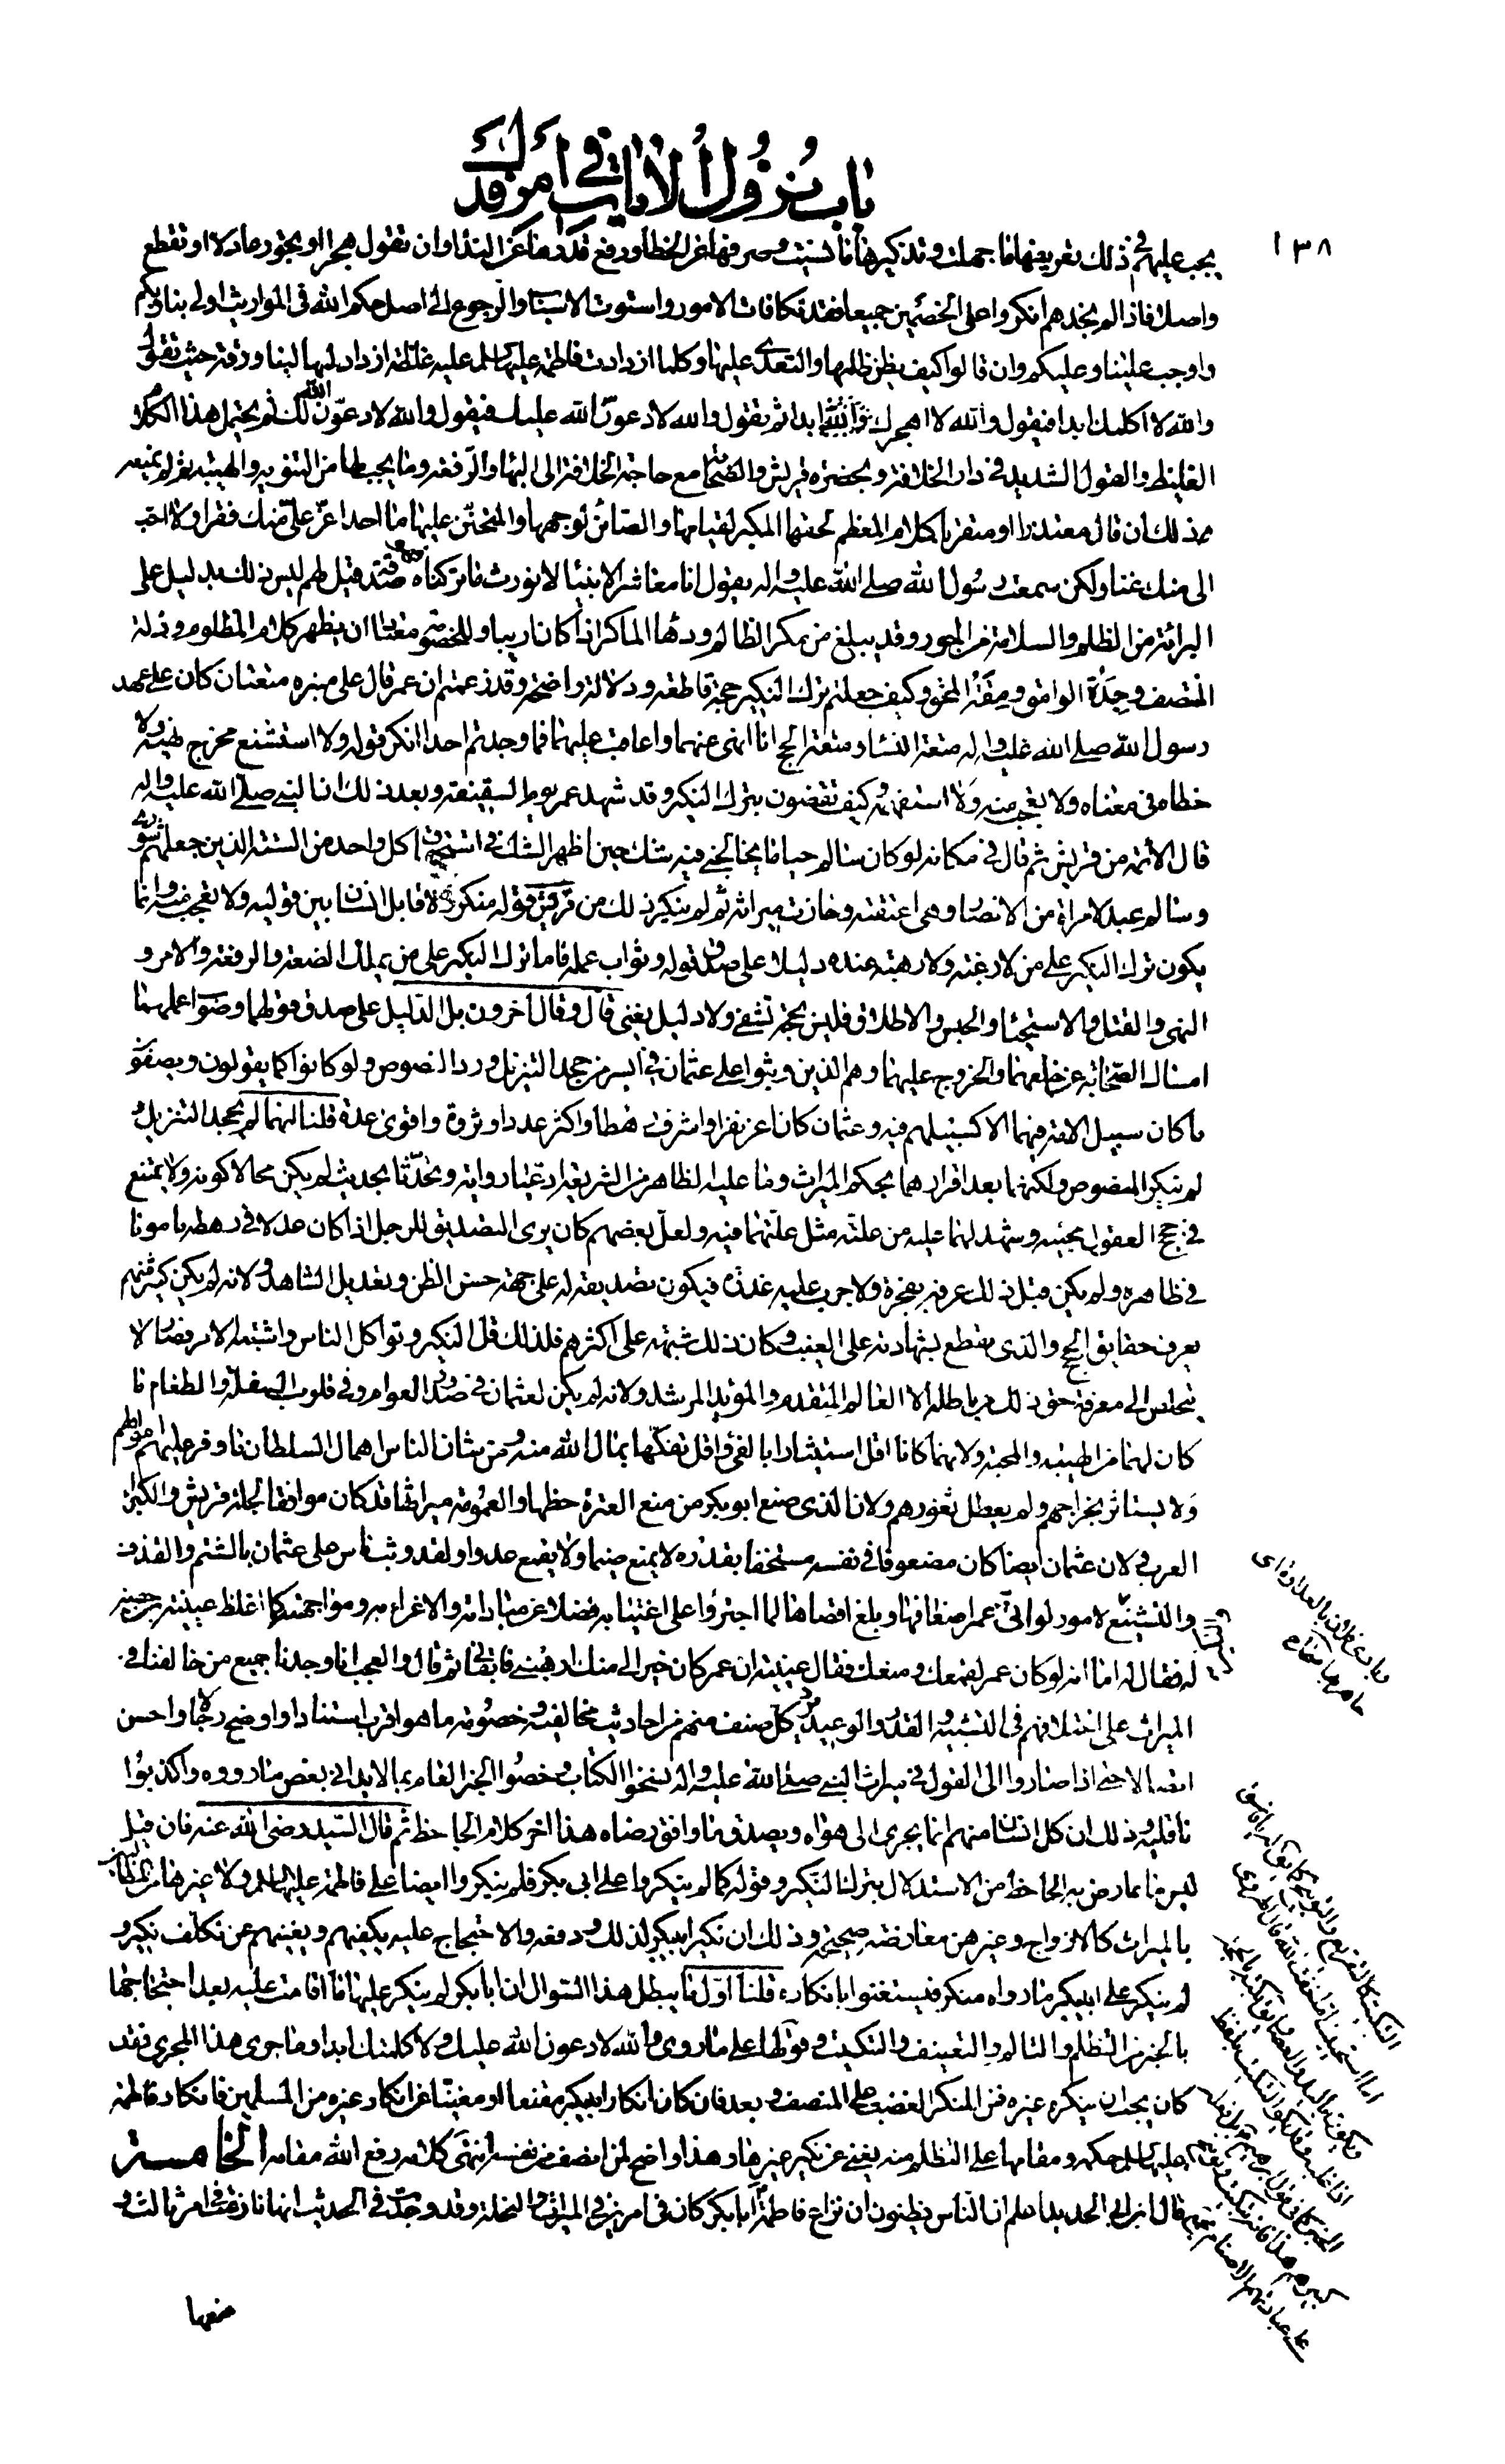 باب نزول الايات في امر فدك
١٣٨
يجب عليهم في ذلك تعريفها ما جهلت وتذكيرها ما نسيت وصرفها عن الخطا ورفع قدرها عن البذاء وان تقول هجرا او تجور عادلا او تقطع
واصلا فاذا لم نجدهم انكروا على الخصمين جميعا فقد تكافات الامور واستوت الاسباب والرجوع الى اصل حكم الله في المواريث اولى بنا وبكم
واوجب علينا وعليكم وان قالوا كيف يظن ظلمها والتعدي عليها وكلما ازدادت فاطمة عليها السلم عليه غلظة ازداد لها لينا ورقة حيث تقول
والله لا اكلمك ابدا فيقول والله لا اهجرك ابدا ثم تقول والله لادعون الله عليك فيقول والله لادعون الله لك ثم يحتمل هذا الكلام
الغليظ والقول الشديد في دار الخلافة وبحضرة قريش والصحابة مع حاجة الخلافة الى البهاء والرفعة وما يجب لها من التنويه والهيبة ثم لم يمنعه
ذلك ان قال معتذرا او متقربا كلام المعظم لحقها المكبر لقيامها والصائن لوجهها والمتحنن عليها ما احد اعز علي منك فقرا ولا احب
الي منك غنا ولكن سمعت رسول الله صلى الله عليه واله يقول انا معاشر الانبياء لا نورث ما تركناه صدقة قيل لهم ليس ذلك بدليل على
البرائة من الظلم والسلامة من الجور وقد يبلغ من مكر الظالم ودهاء الماكر اذا كان اريبا وللخصومة معتادا ان يظهر كلام المظلوم وذلة
المنتصف وحدة الوامق ومقة المحق وكيف جعلتم ترك النكير حجة قاطعة ودلالة واضحة وقد زعمتم ان عمر قال على منبره متعتان كان على عهد
رسول الله صلى الله عليه واله متعة النساء ومتعة الحج انا انهى عنهما واعاقب عليهما فما وجدتم احدا انكر قوله ولا استشنع مخرج نهيه ولا
خطاه في معناه ولا تعجب منه ولا استفهمه وكيف تقضون بترك النكير وقد شهد عمر يوم السقيفة وبعد ذلك ان النبي صلى الله عليه واله
قال الائمة من قريش ثم قال في مكانه لو كان سالم حيا ما يخالجني فيه شك حين اظهر الشك في استحقاق كل واحد من الستة الذين جعلهم شورى
وسالم عبد لامراة من الانصار وهي اعتقته وحازت ميراثه ثم لم ينكر ذلك من قوله منكر ولا قابل انسان بين قوليه ولا تعجب منه وانما
يكون ترك النكير على من لا رغبة ولا رهبة عنده دليلا على صدق قوله وثواب عمله فاما ترك النكير على من يملك الضعة والرفعة والامر و
النهي والقتل والاستحياء والحبس والاطلاق فليس بحجة تشفي ولا دليل يغني قال وقال اخرون بل الدليل على صدق قولهما وصواب عملهما
امساك الصحابة عن خلعهما والخروج عليهما وهم الذين وثبوا على عثمان في ايسر من جحد التنزيل ورد النصوص ولو كانوا كما يقولون ويصفون
ما كان سبيل الامة فيهما الا كسبيلهم فيه وعثمان كان اعز نفرا واشرف رهطا واكثر عددا وثروة واقوى عدة قلنا انهما لم يجحدا التنزيل و
لم ينكرا النصوص ولكنهما بعد اقرارهما بحكم الميراث وما عليه الظاهر من الشريعة ادعيا رواية وتحدثا بحديث لم يكن محالا كونه ولا يمتنع
في حجج العقول مجيئه وشهد لهما عليه من علته مثل علتهما فيه ولعل بعضهم كان يرى التصديق للرجل اذا كان عدلا في رهطه مامونا
في ظاهره ولم يكن قبل ذلك عرفه بفجرة ولا جرب عليه غدرة فيكون تصديقه له على جهة حسن الظن وتعديل الشاهد ولانه لم يكن كثير منهم
يعرف حقايق الحجج والذي يقطع بشهادته على الغيب وكان ذلك شبهة على اكثرهم فلذلك قل النكير وتواكل الناس واشتبه الامر فصار لا
يتخلص الى معرفة حق ذلك من باطله الا العالم المتقدم والمؤيد المرشد ولانه لم يكن لعثمان في صدور العوام وفي قلوب السفلة والطغام ما
كان لهما من الهيبة والمحبة ولانهما كانا اقل استيثارا بالفيء واقل تفكها بمال الله منه ومن شان الناس اهمال السلطان ما وفر عليهم اموالهم
ولا يستاثر بخراجهم ولم يعطل ثغورهم ولان الذي صنع ابو بكر من منع العترة حظها والعمومة ميراثها قد كان موافقا لجلة قريش ولكبراء
العرب ولان عثمان ايضا كان مضعوفا في نفسه مستخفا بقدره لا يمنع ضيما ولا يقمع عدوا ولقد وثب ناس على عثمان بالشتم والقذف
والتشنيع لامور لو اتى عمر اضعافها وبلغ اقصاها لما اجترؤا على اغتيابه فضلا عن مباداته والاغراء به ومواجهته كما اغلظ عيينة بن حصن
له فقال له اما انه لو كان عمر لقمعك ومنعك فقال عيينة ان عمر كان خيرا لي منك ارهبني فاتقاني ثم قال والعجب انا وجدنا جميع من خالفنا في
الميراث على اختلافهم في التشبيه والقدر والوعيد يرد كل صنف منهم من احاديث مخالفيه وخصومه ما هو اقرب استنادا واوضح رجالا واحسن
اتصالا حتى اذا صاروا الى القول في ميراث النبي صلى الله عليه واله نسخوا الكتاب وخصوا الخبر العام بما لا يداني بعض ما رووه واكذبوا
ناقليه وذلك ان كل انسان منهم انما يجري الى هواه ويصدق ما وافق رضاه هذا اخر كلام الجاحظ ثم قال السيد رضي الله عنه فان قيل
ليس ما عارض به الجاحظ من الاستدلال بترك النكير وقوله كما لم ينكروا على ابي بكر فلم ينكروا ايضا على فاطمة عليها السلم ولا غيرها من المطالبين
بالميراث كالازواج وغيرهن معارضة صحيحة وذلك ان نكير ابي بكر لذلك ودفعه والاحتجاج عليه يكفيهم ويغنيهم عن تكلف نكير و
لم ينكر على ابي بكر ما رواه منكر فيستغنوا بانكاره قلنا اول ما يبطل هذا السوال ان ابا بكر لم ينكر عليها ما اقامت عليه بعد احتجاجها
بالخبر من التظلم والتالم والتعنيف والتبكيت وقولها على ما روي والله لادعون الله عليك ولا كلمتك ابدا وما جرى هذا المجرى فقد
كان يجب ان ينكره غيره فمن المنكر الغضب على المنصف وبعد فان كان انكار ابي بكر مقنعا او مغنيا عن انكار غيره من المسلمين فانكار فاطمة
عليها السلم حكمه ومقامها على التظلم منه يغني عن نكير غيرها وهذا واضح لمن انصف من نفسه انتهى كلامه رفع الله مقامه الخامسة
قال ابن ابي الحديد اعلم ان الناس يظنون ان نزاع فاطمة ابا بكر كان في امرين في الميراث والنحلة وقد وجدت في الحديث انها نازعت في امر ثالث و
منعها